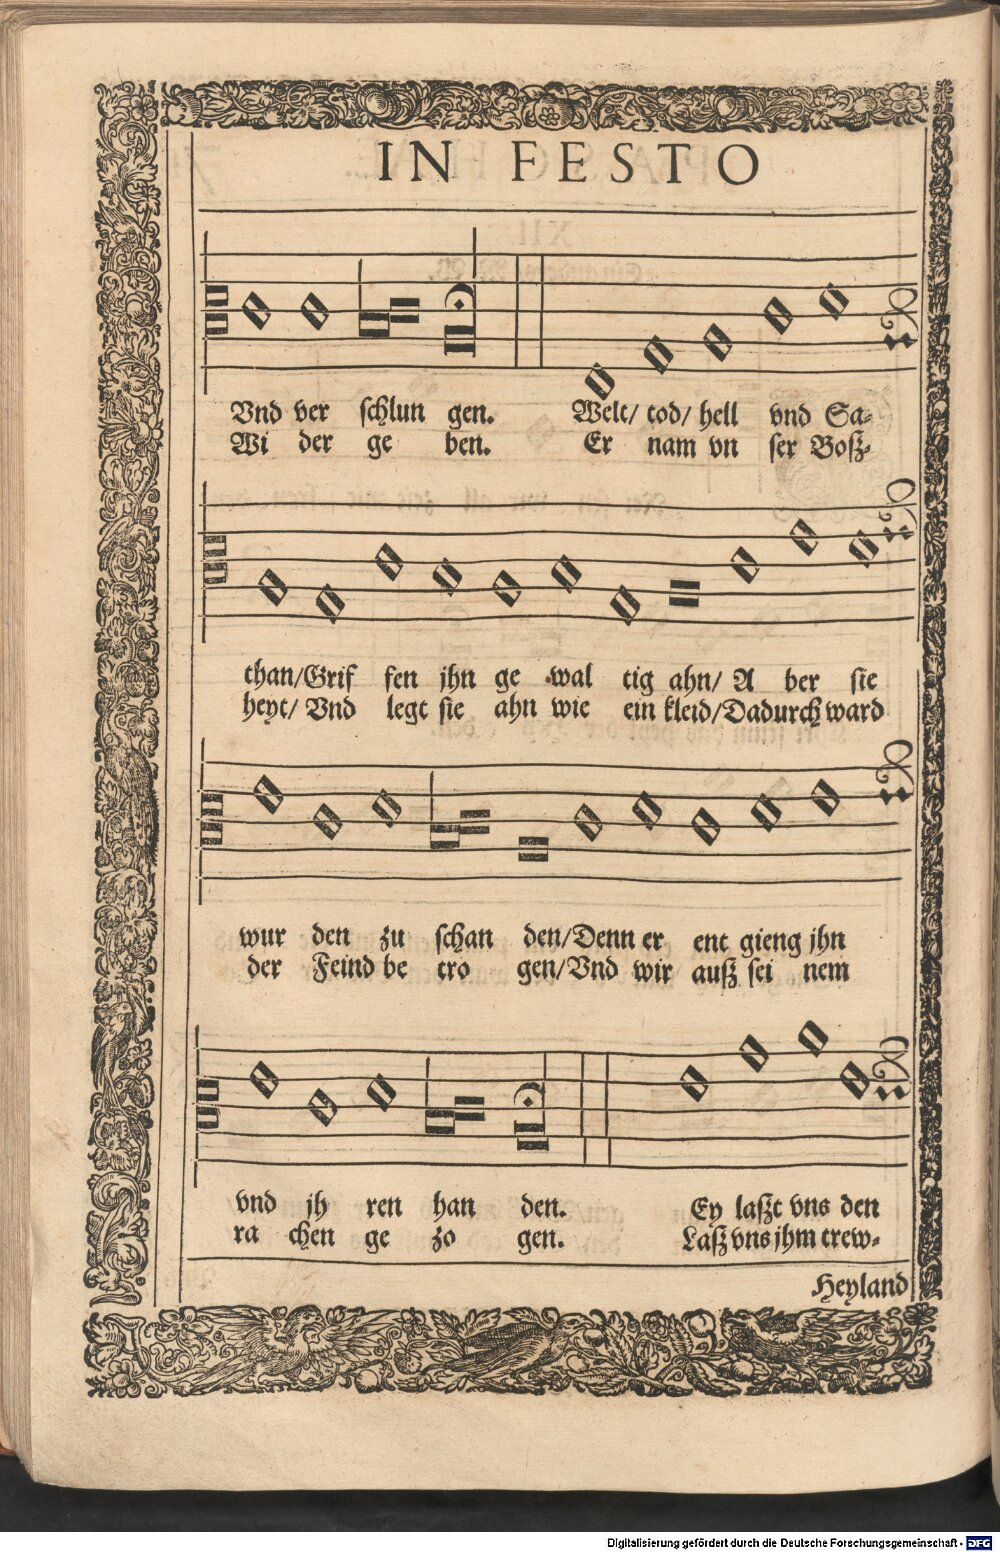 IN FESTO
Vnd ver schlun gen. Welt/ tod/ hell vnd Sa-
Wi der ge ben. Er nam vn ser Boſz-
than/Grif fen jhn ge wal tig ahn/ A ber sie
heyt/ Vnd legt sie ahn wie ein kleid/Dadurch ward
wur den zu schan den/Denn er ent gieng jhn
der Feind be tro gen/Vnd wir auſz sei nem
vnd jh ren han den. Ey laſzt vns den
ra chen ge zo gen. Laſz vns jhm trew-
Heyland
Digitalisierung gefördert durch die Deutsche Forschungsgemeinschaft - DFG